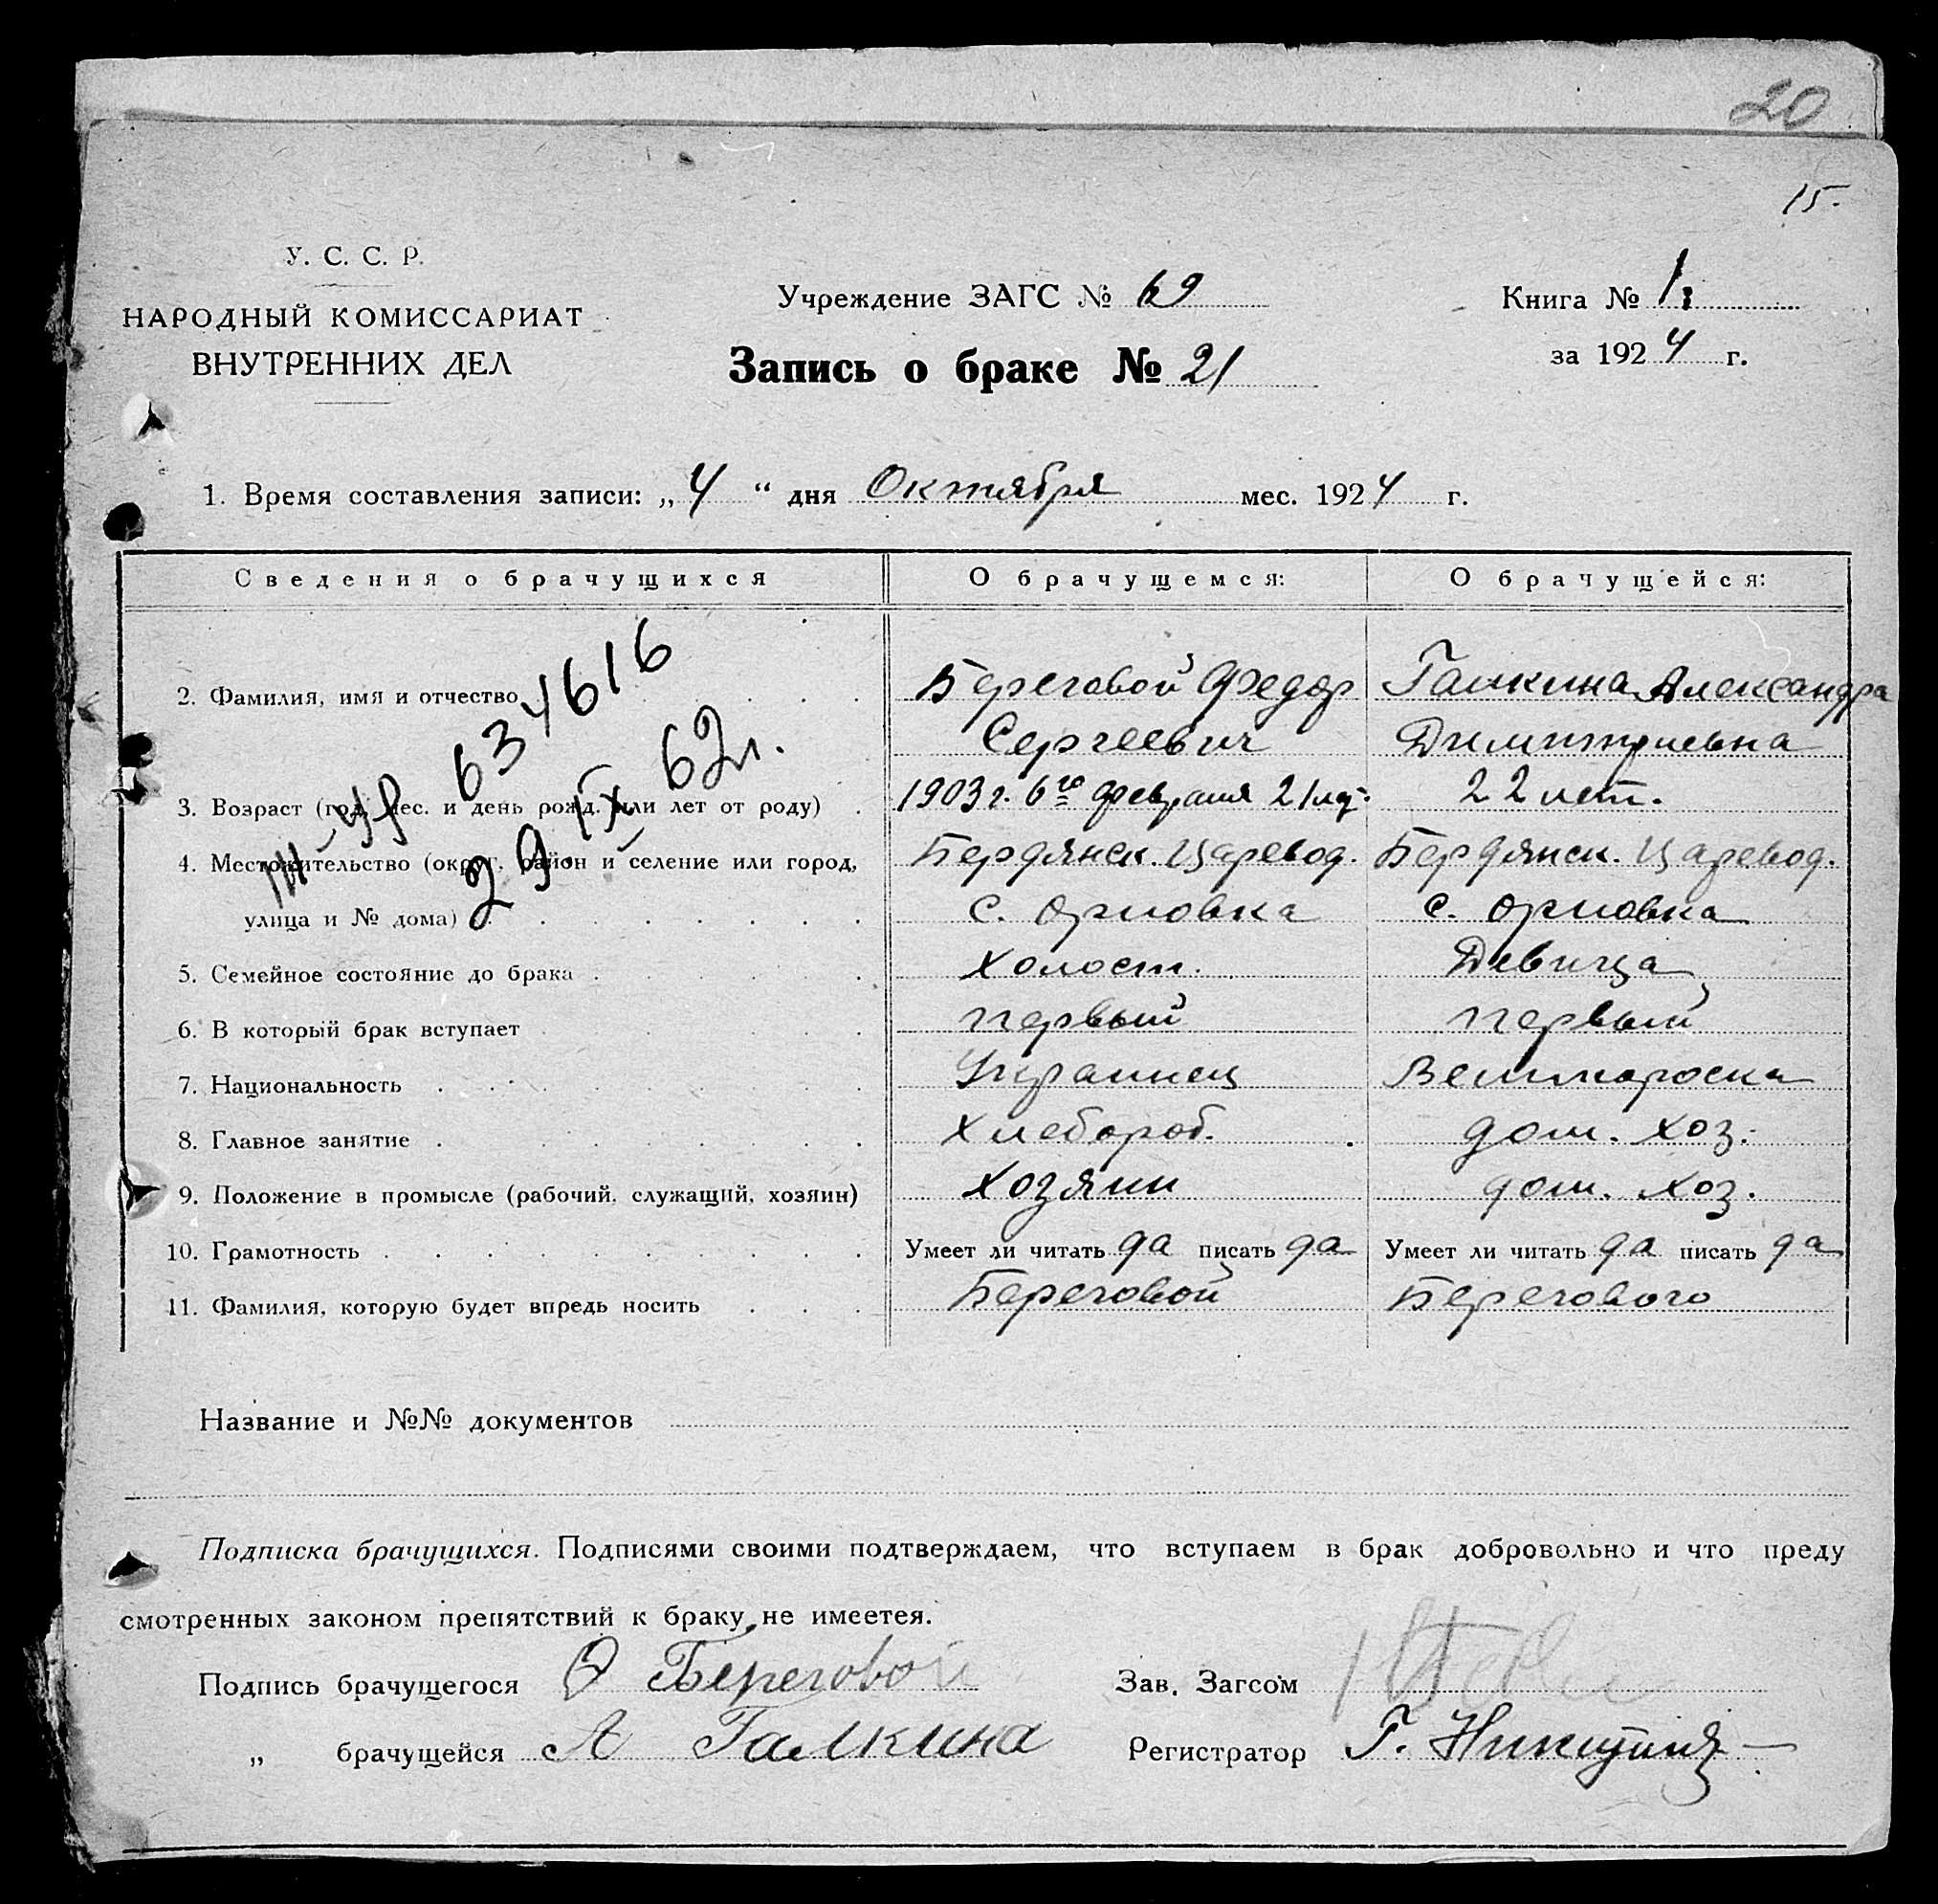 20
15.
У. С. С. Р.
НАРОДНЫЙ КОМИССАРИАТ
ВНУТРЕННИХ ДЕЛ
Учреждение ЗАГС № 69
Книга № 1
Запись о браке № 21
за 1924 г.
1. Время составления записи: „4“ дня Октября мес. 1924 г.
Сведения о брачущихся О брачущемся: О брачущейся:
2. Фамилия, имя и отчество Береговой Федор Галкина Александра
Сергеевич Димитриевна
3. Возраст (год, мес. и день рожд. или лет от роду) 1903 г. 6го февраля 21 год. 22 лет.
4. Местожительство (округ, район и селение или город, Бердянск. Царевод. Бердянск. Царевод.
улица и № дома) с. Орловка с. Орловка
5. Семейное состояние до брака Холост. Девица
6. В который брак вступает первый первый
7. Национальность Украинец Великороска
8. Главное занятие Хлебороб. дом. хоз.
9. Положение в промысле (рабочий, служащий, хозяин) Хозяин дом. хоз.
10. Грамотность Умеет ли читать да писать да Умеет ли читать да писать да
11. Фамилия, которую будет впредь носить Береговой Берегового
III-УР 634616
29 IX 62г.
Название и №№ документов
Подписка брачущихся. Подписями своими подтверждаем, что вступаем в брак добровольно и что преду
смотренных законом препятствий к браку не имеетея.
Подпись брачущегося Ф Береговой Зав. Загсом
„ брачущейся А Галкина Регистратор Г.